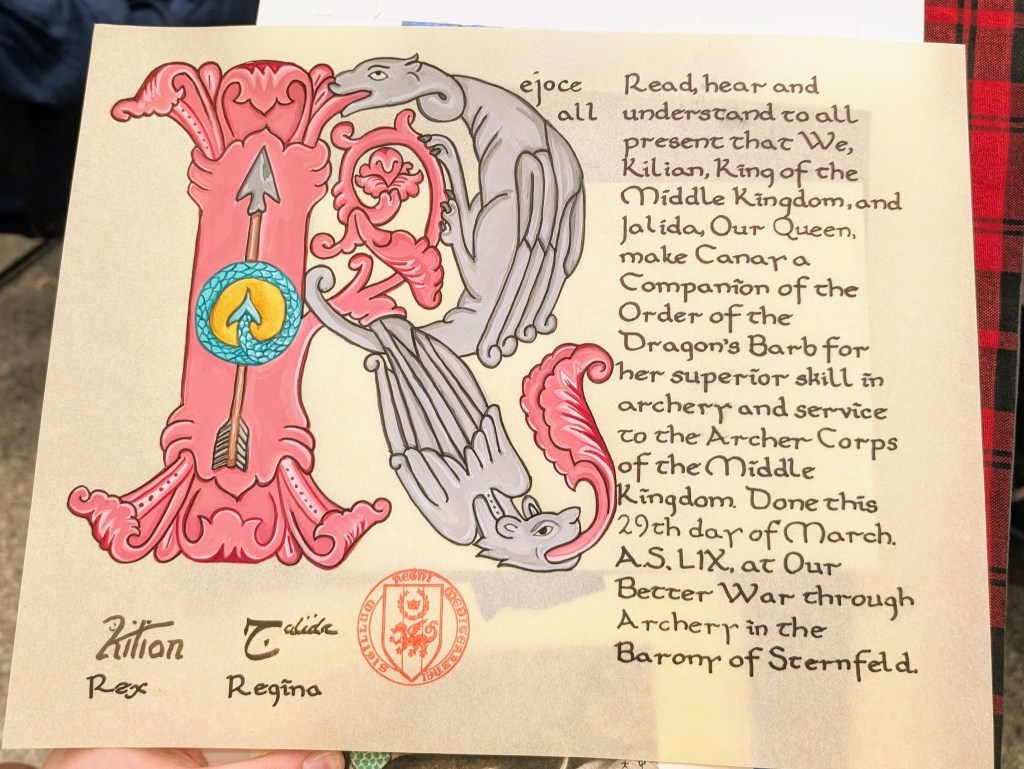 Rejoce
all
Read, hear and
understand to all
present that We,
Kilian, King of the
Middle Kingdom, and
Jalida, Our Queen,
make Canay a
Companion of the
Order of the
Dragon's Barb for
her superior skill in
archery and service
to the Archer Corps
of the Middle
Kingdom. Done this
29th day of March.
A.S. LIX, at Our
Better War through
Archery in the
Barony of Sternfeld.
Kilian
Rex
Jalida
Regina
SIGILLUM REGNI MEDITERRANEI